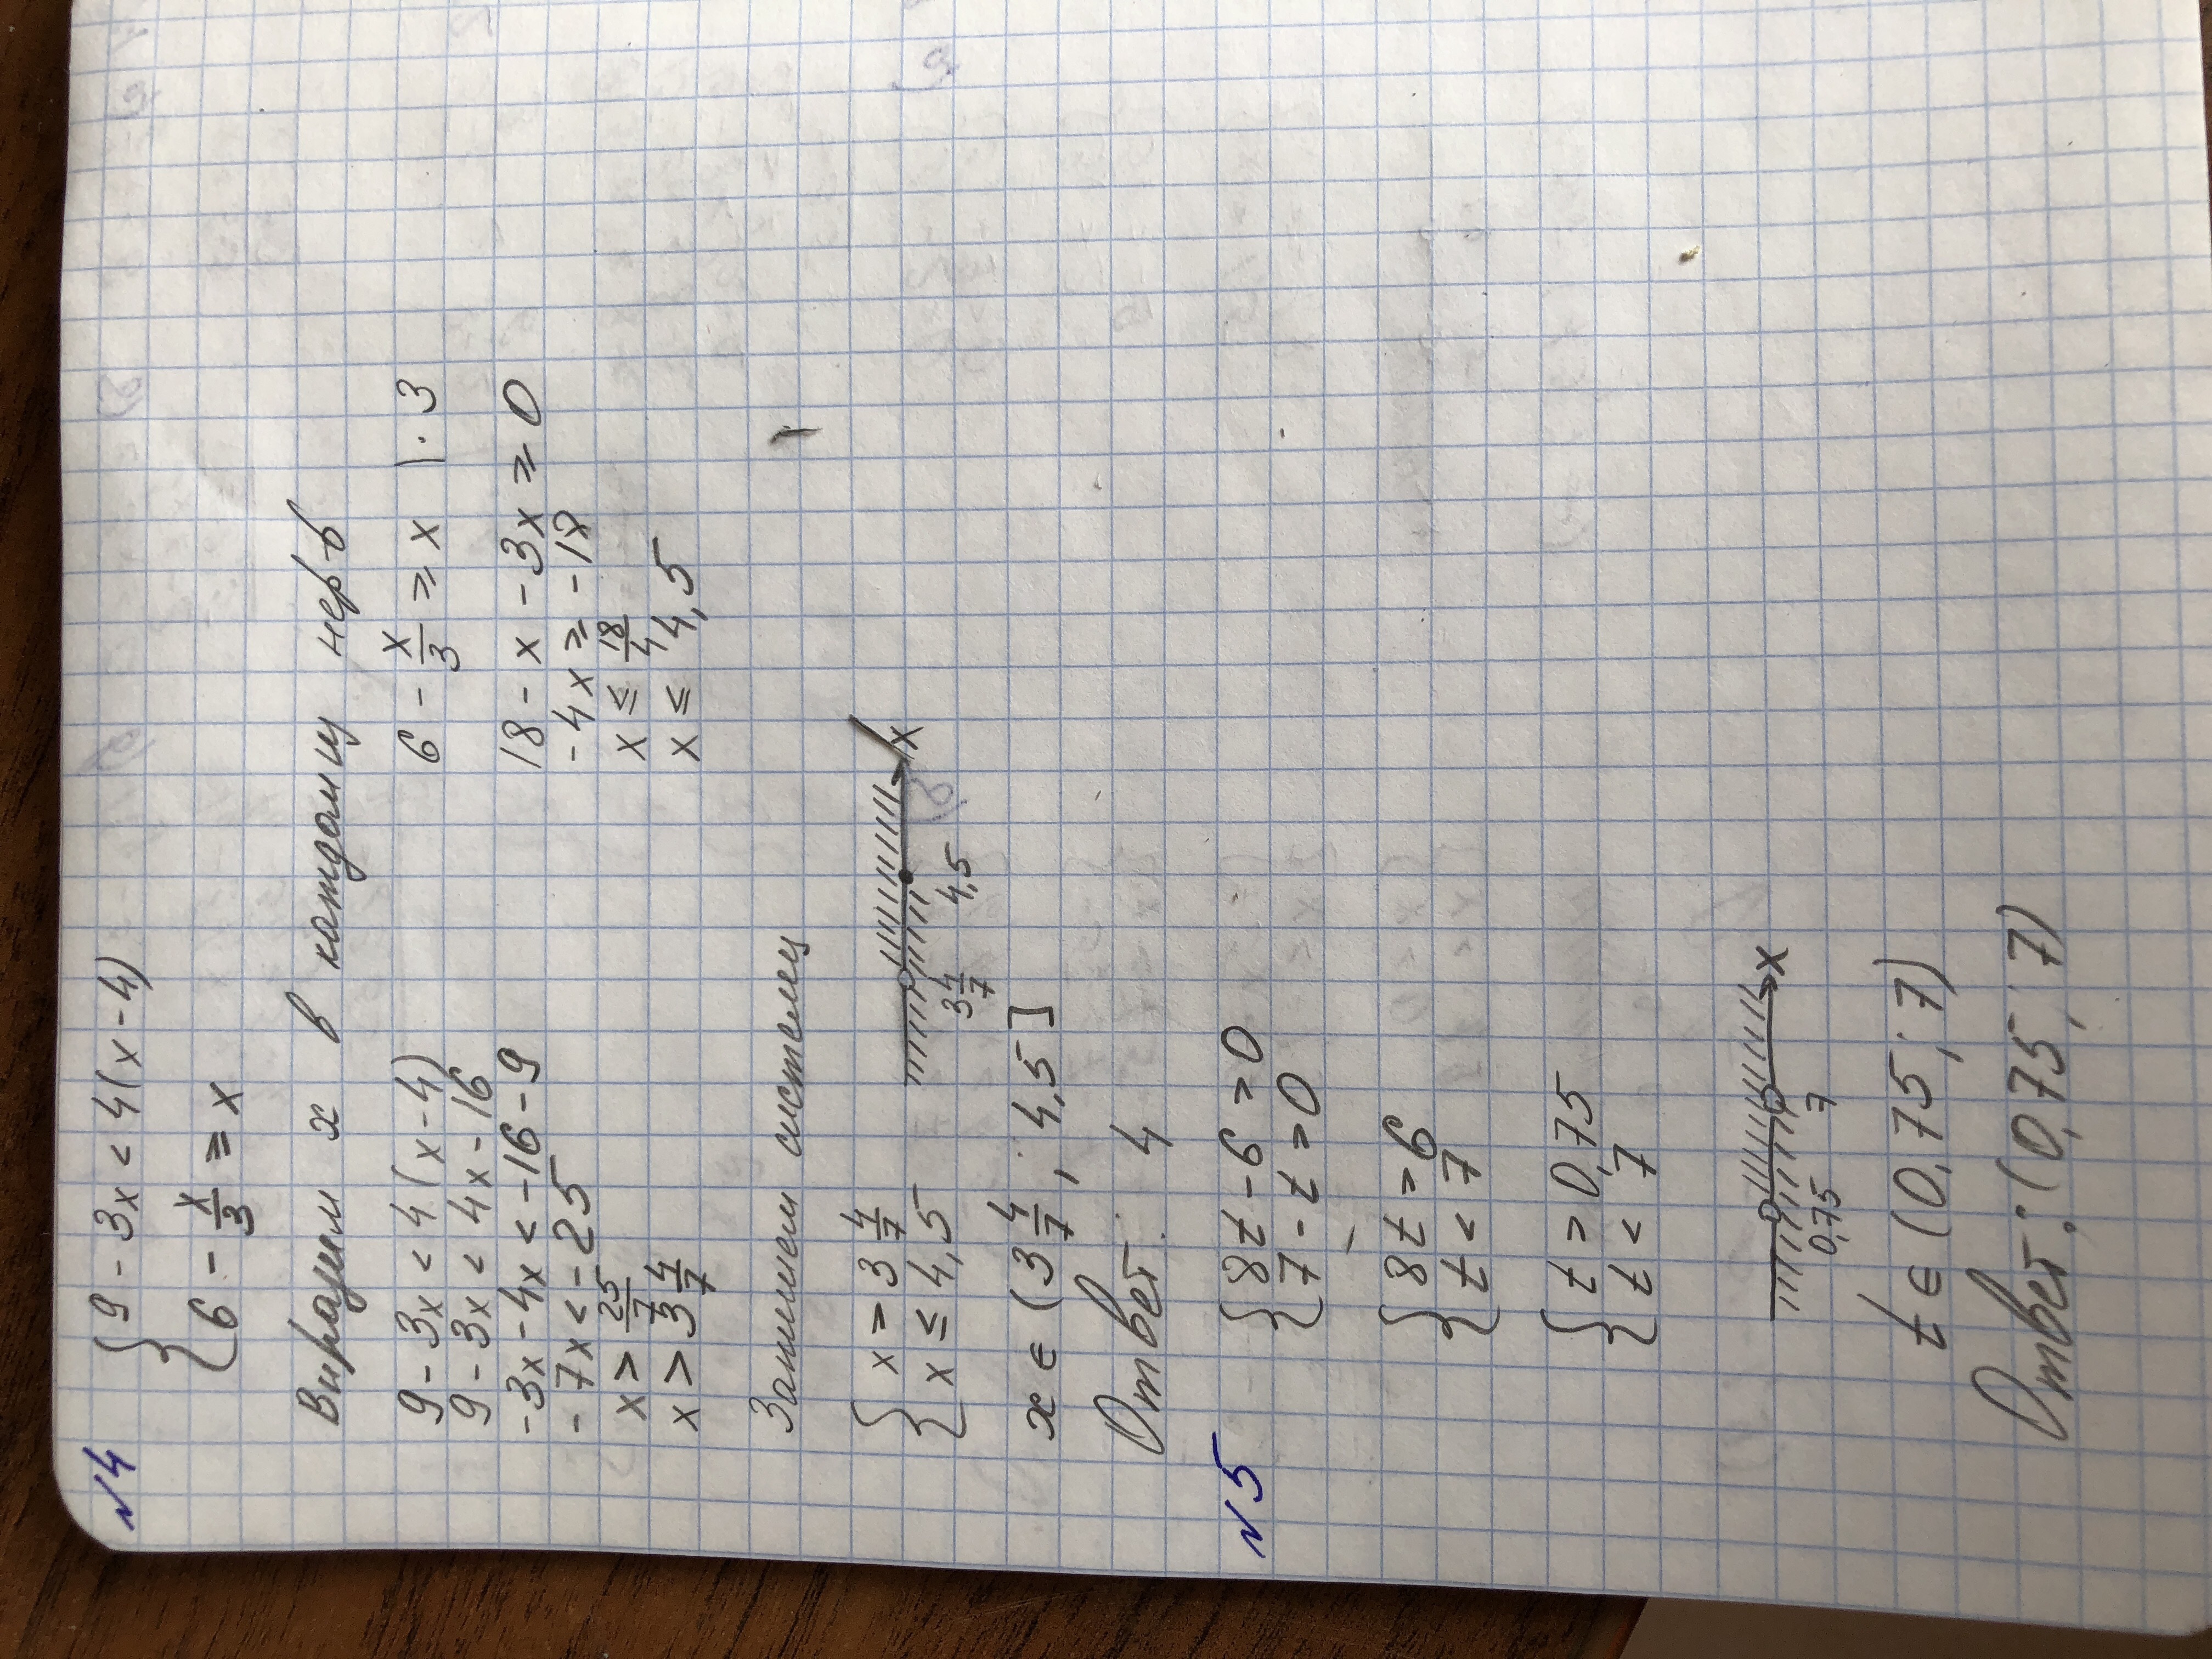 №4
{ 9 - 3x < 4(x - 4)
{ 6 - x/3 ≥ x
Виразим x в каждом нер-в
9 - 3x < 4(x - 4)
9 - 3x < 4x - 16
-3x - 4x < -16 - 9
-7x < -25
x > 25/7
x > 3 4/7
6 - x/3 ≥ x | · 3
18 - x - 3x ≥ 0
-4x ≥ -18
x ≤ 18/4
x ≤ 4,5
Запишем систему
{ x > 3 4/7
{ x ≤ 4,5
3 4/7 4,5 x
x ∈ (3 4/7; 4,5]
Ответ: 4
№5
{ 8t - 6 > 0
{ 7 - t > 0
{ 8t > 6
{ t < 7
{ t > 0,75
{ t < 7
0,75 7 x
t ∈ (0,75; 7)
Ответ: (0,75; 7)